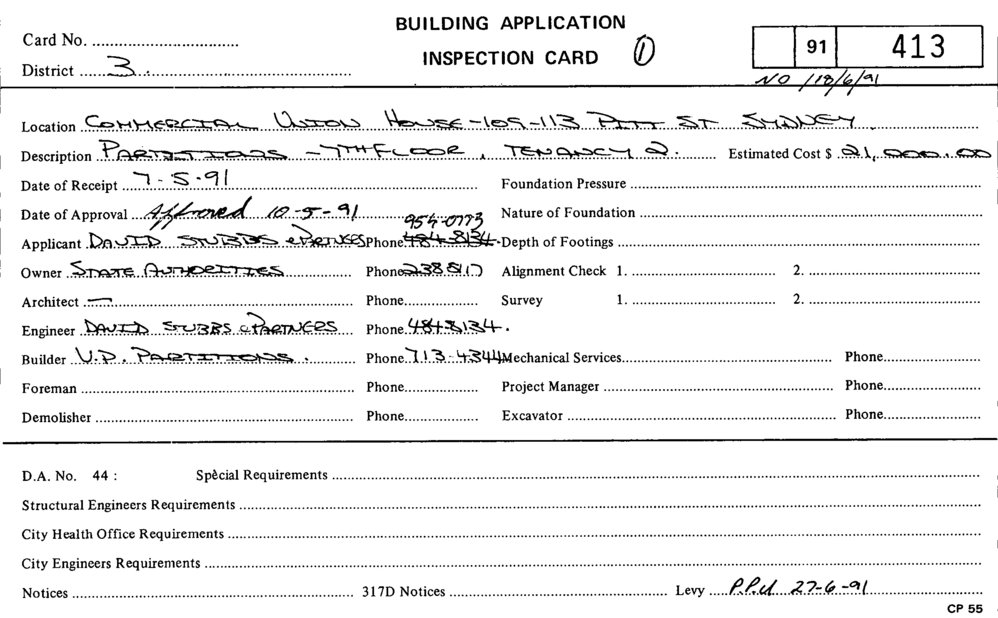 BUILDING APPLICATION
INSPECTION CARD ①
Card No.
District 3
91 413
NO 18/6/91
Location COMMERCIAL UNION HOUSE - 109-113 PITT ST SYDNEY
Description PARTITIONS - 7TH FLOOR, TENANCY 2. Estimated Cost $ 21,000.00
Date of Receipt 7-5-91 Foundation Pressure
Date of Approval Approved 10-5-91 Nature of Foundation
954-0773
Applicant DAVID STUBBS & PARTNERS Phone 484-8134 Depth of Footings
Owner STATE AUTHORITIES Phone Alignment Check 1. 2.
Architect — Phone Survey 1. 2.
Engineer DAVID STUBBS & PARTNERS Phone 484-8134.
Builder V.D. PARTITIONS. Phone 713-4344 Mechanical Services Phone
Foreman Phone Project Manager Phone
Demolisher Phone Excavator Phone
D.A. No. 44 : Special Requirements
Structural Engineers Requirements
City Health Office Requirements
City Engineers Requirements
Notices 317D Notices Levy 27-6-91
CP 55